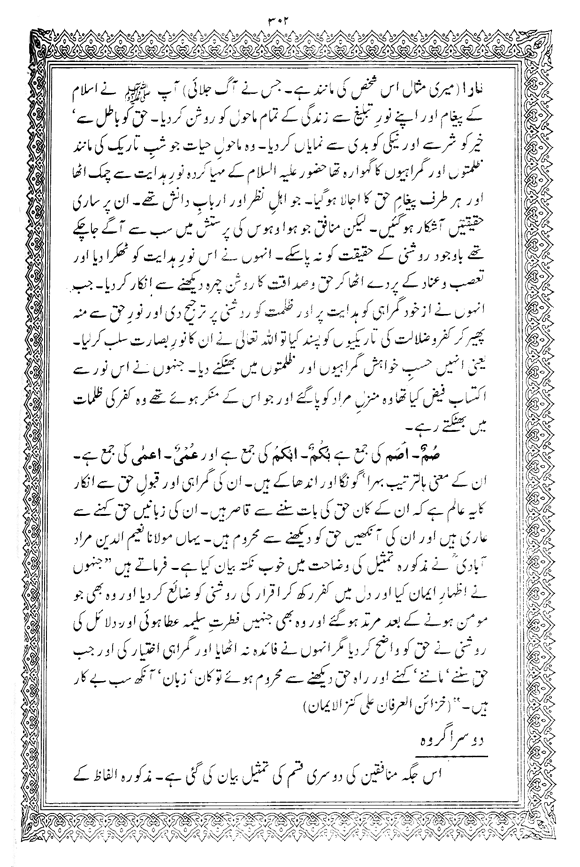 ۳۰۲
نارا (میری مثال اس شخص کی مانند ہے۔ جس نے آگ جلائی) آپ ﷺ نے اسلام
کے پیغام اور اپنے نورِ تبلیغ سے زندگی کے تمام ماحول کو روشن کردیا۔ حق کو باطل سے‘
خیر کو شر سے اور نیکی کو بدی سے نمایاں کردیا۔ وہ ماحولِ حیات جو شبِ تاریک کی مانند
ظلمتوں اور گمراہیوں کا گہوارہ تھا حضور علیہ السلام کے مہیا کردہ نورِ ہدایت سے چمک اٹھا
اور ہر طرف پیغامِ حق کا اجالا ہوگیا۔ جو اہلِ نظر اور اربابِ دانش تھے۔ ان پر ساری
حقیقتیں آشکار ہوگئیں۔ لیکن منافق جو ہوا وہوس کی پرستش میں سب سے آگے جاچکے
تھے باوجود روشنی کے حقیقت کو نہ پاسکے۔ انہوں نے اس نورِ ہدایت کو ٹھکرا دیا اور
تعصب وعناد کے پردے اٹھا کر حق وصداقت کا روشن چہرہ دیکھنے سے انکار کردیا۔ جب
انہوں نے ازخود گمراہی کو ہدایت پر اور ظلمت کو روشنی پر ترجیح دی اور نورِ حق سے منہ
پھیر کر کفر وضلالت کی تاریکیوں کو پسند کیا تو اللہ تعالیٰ نے ان کا نورِ بصارت سلب کرلیا۔
یعنی انہیں حسبِ خواہش گمراہیوں اور ظلمتوں میں بھٹکنے دیا۔ جنہوں نے اس نور سے
اکتسابِ فیض کیا تھا وہ منزلِ مراد کو پاگئے اور جو اس کے منکر ہوئے تھے وہ کفر کی ظلمات
میں بھٹکتے رہے۔
صُمٌّ۔ اصَم کی جمع ہے بُکْمٌ۔ ابْکَمُ کی جمع ہے اور عُمْیٌ۔ اعمٰی کی جمع ہے۔
ان کے معنی بالترتیب بہرا‘ گونگا اور اندھا کے ہیں۔ ان کی گمراہی اور قبولِ حق سے انکار
کا یہ عالم ہے کہ ان کے کان حق کی بات سننے سے قاصر ہیں۔ ان کی زبانیں حق کہنے سے
عاری ہیں اور ان کی آنکھیں حق کو دیکھنے سے محروم ہیں۔ یہاں مولانا نعیم الدین مراد
آبادیؒ نے مذکورہ تمثیل کی وضاحت میں خوب نکتہ بیان کیا ہے۔ فرماتے ہیں ”جنہوں
نے اظہارِ ایمان کیا اور دل میں کفر رکھ کر اقرار کی روشنی کو ضائع کردیا اور وہ بھی جو
مومن ہونے کے بعد مرتد ہوگئے اور وہ بھی جنہیں فطرتِ سلیمہ عطا ہوئی اور دلائل کی
روشنی نے حق کو واضح کردیا مگر انہوں نے فائدہ نہ اٹھایا اور گمراہی اختیار کی اور جب
حق سننے‘ ماننے‘ کہنے اور راہِ حق دیکھنے سے محروم ہوئے تو کان‘ زبان‘ آنکھ سب بے کار
ہیں۔“ (خزائن العرفان علی کنز الایمان)
دوسرا گروہ
اس جگہ منافقین کی دوسری قسم کی تمثیل بیان کی گئی ہے۔ مذکورہ الفاظ کے